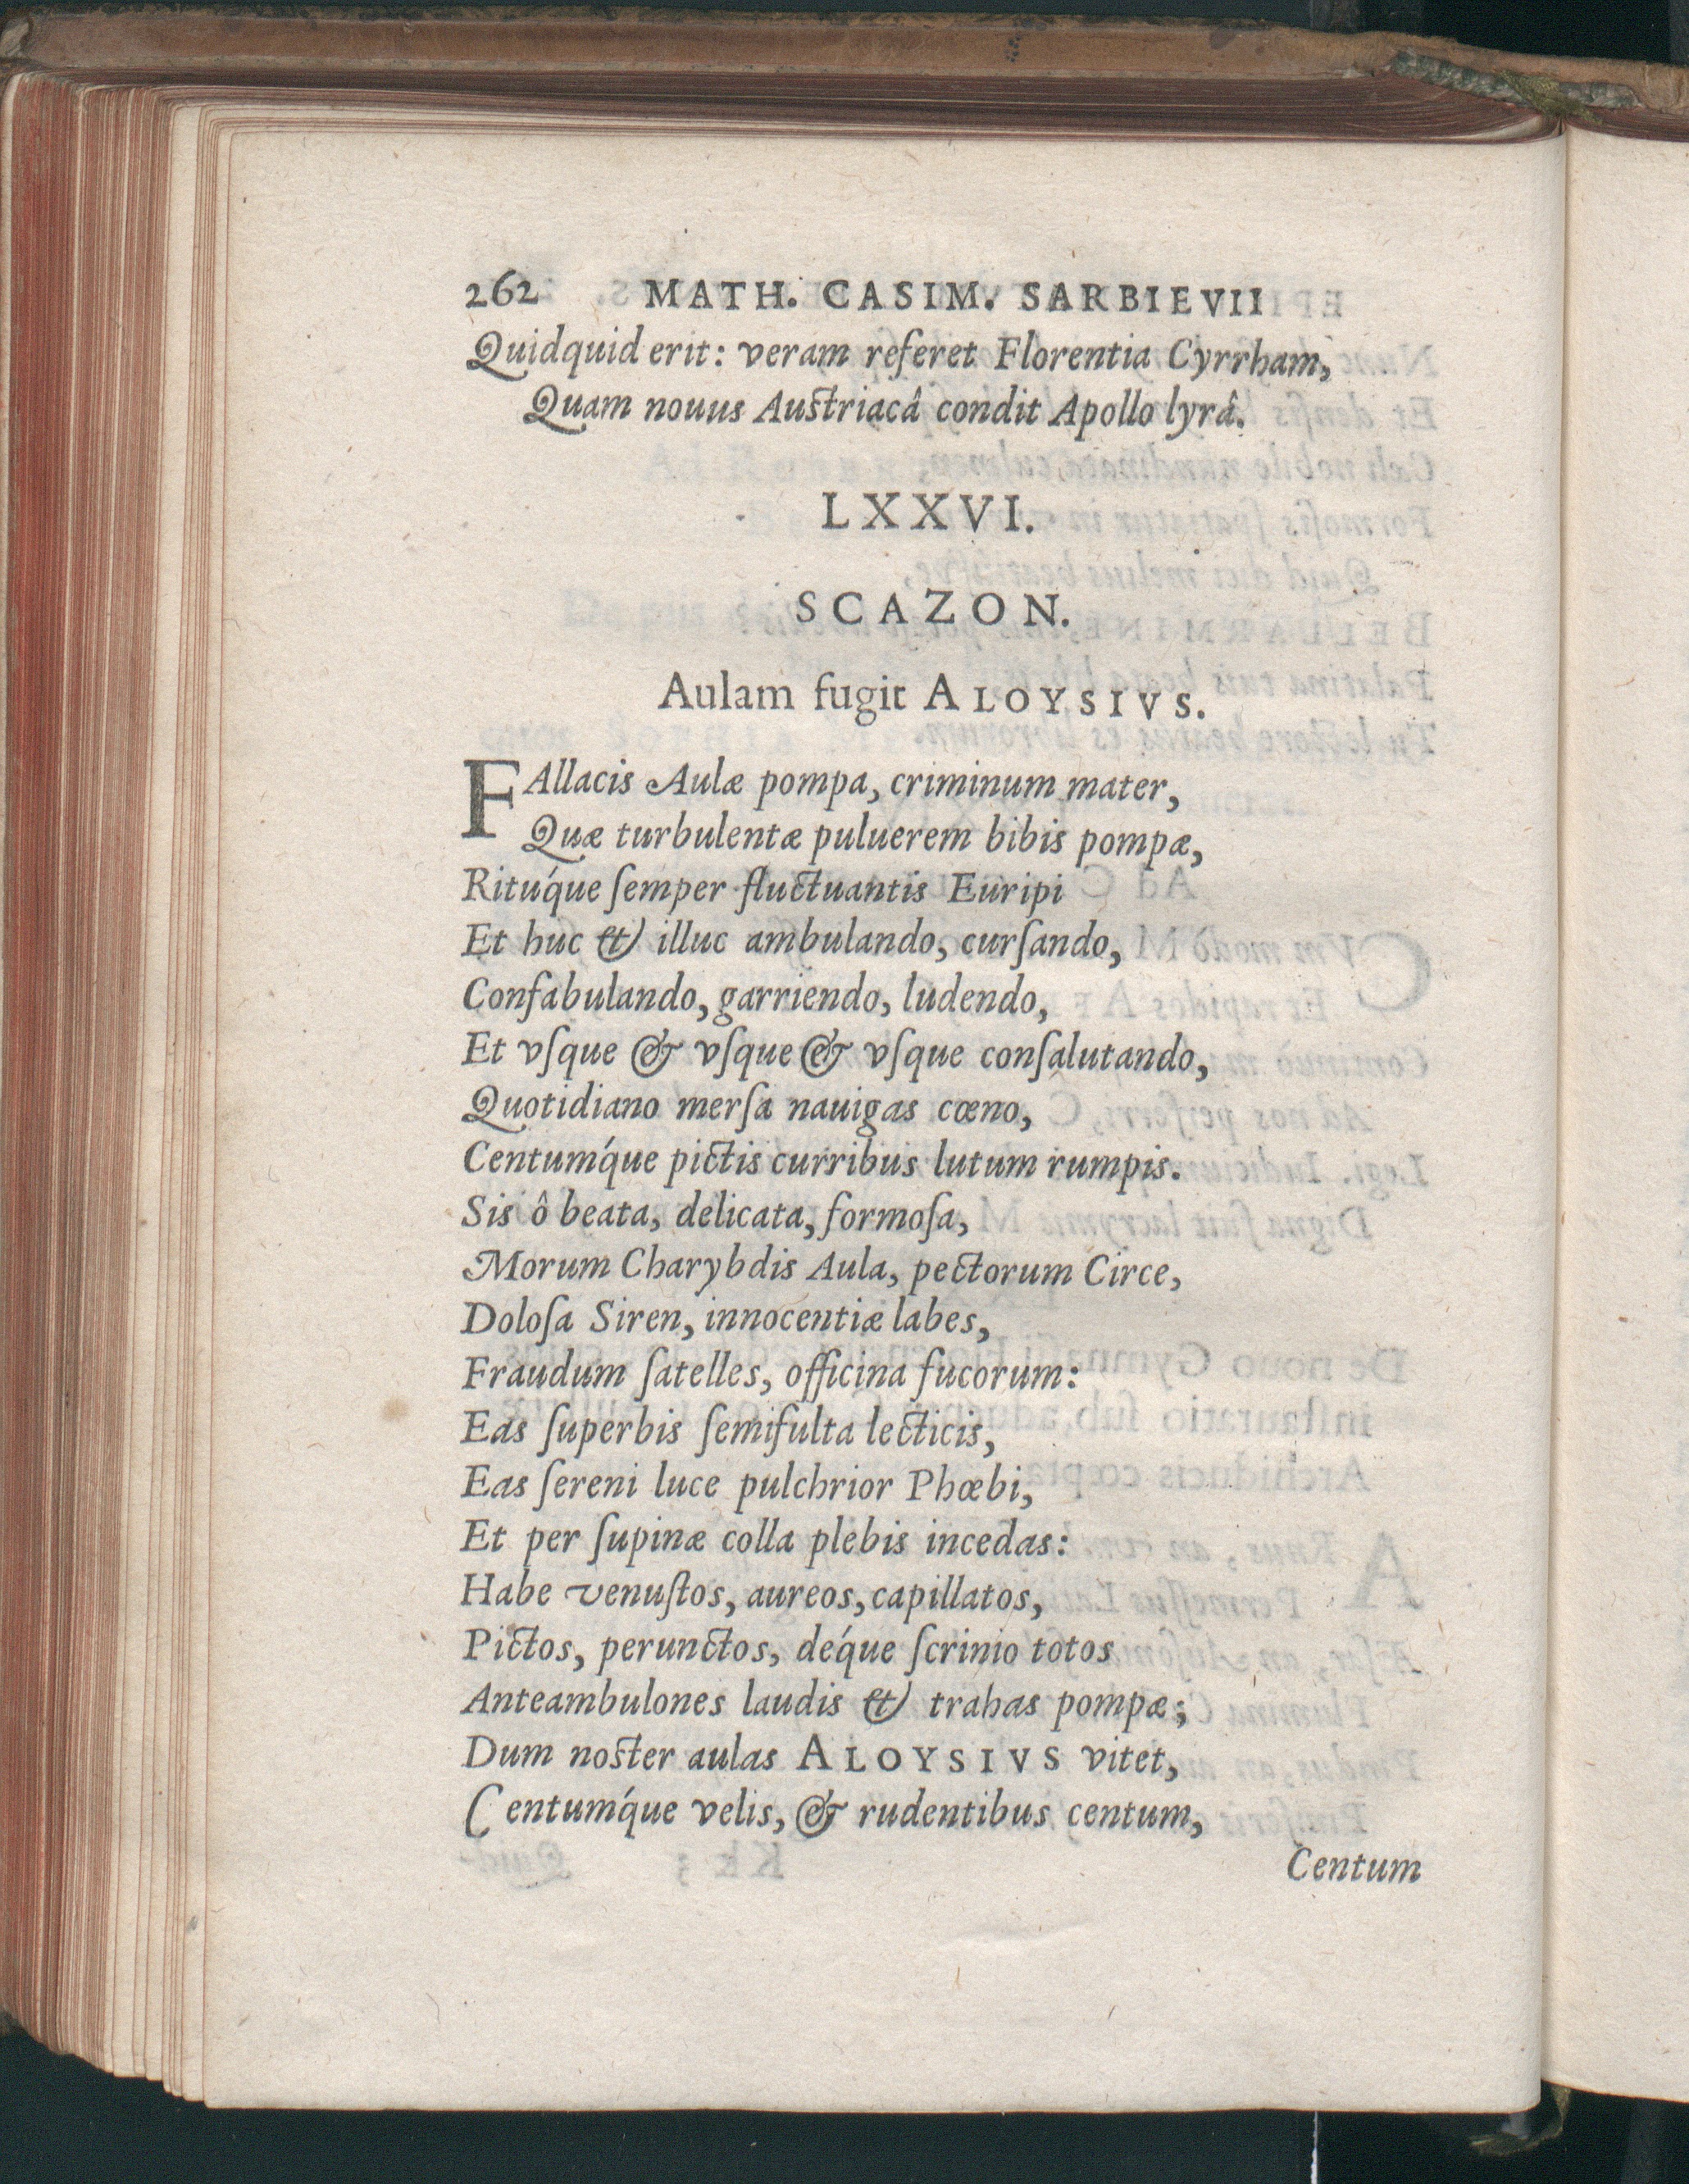 262 MATH. CASIM. SARBIEVII
Quidquid erit: veram referet Florentia Cyrrham,
Quam nouus Austriacâ condit Apollo lyrâ.
LXXVI.
SCAZON.
Aulam fugit ALOYSIVS.
FAllacis Aulæ pompa, criminum mater,
Quæ turbulentæ puluerem bibis pompæ,
Ritúque ſemper fluctuantis Euripi
Et huc & illuc ambulando, curſando,
Confabulando, garriendo, ludendo,
Et vſque & vſque & vſque conſalutando,
Quotidiano merſa nauigas cœno,
Centumq́ue pictis curribus lutum rumpis.
Sis ô beata, delicata, formoſa,
Morum Charybdis Aula, pectorum Circe,
Doloſa Siren, innocentiæ labes,
Fraudum ſatelles, officina fucorum:
Eas ſuperbis ſemifulta lecticis,
Eas ſereni luce pulchrior Phœbi,
Et per ſupinæ colla plebis incedas:
Habe venuſtos, aureos, capillatos,
Pictos, perunctos, déque ſcrinio totos
Anteambulones laudis & trahas pompæ;
Dum noster aulas ALOYSIVS vitet,
Centumq́ue velis, & rudentibus centum,
Centum